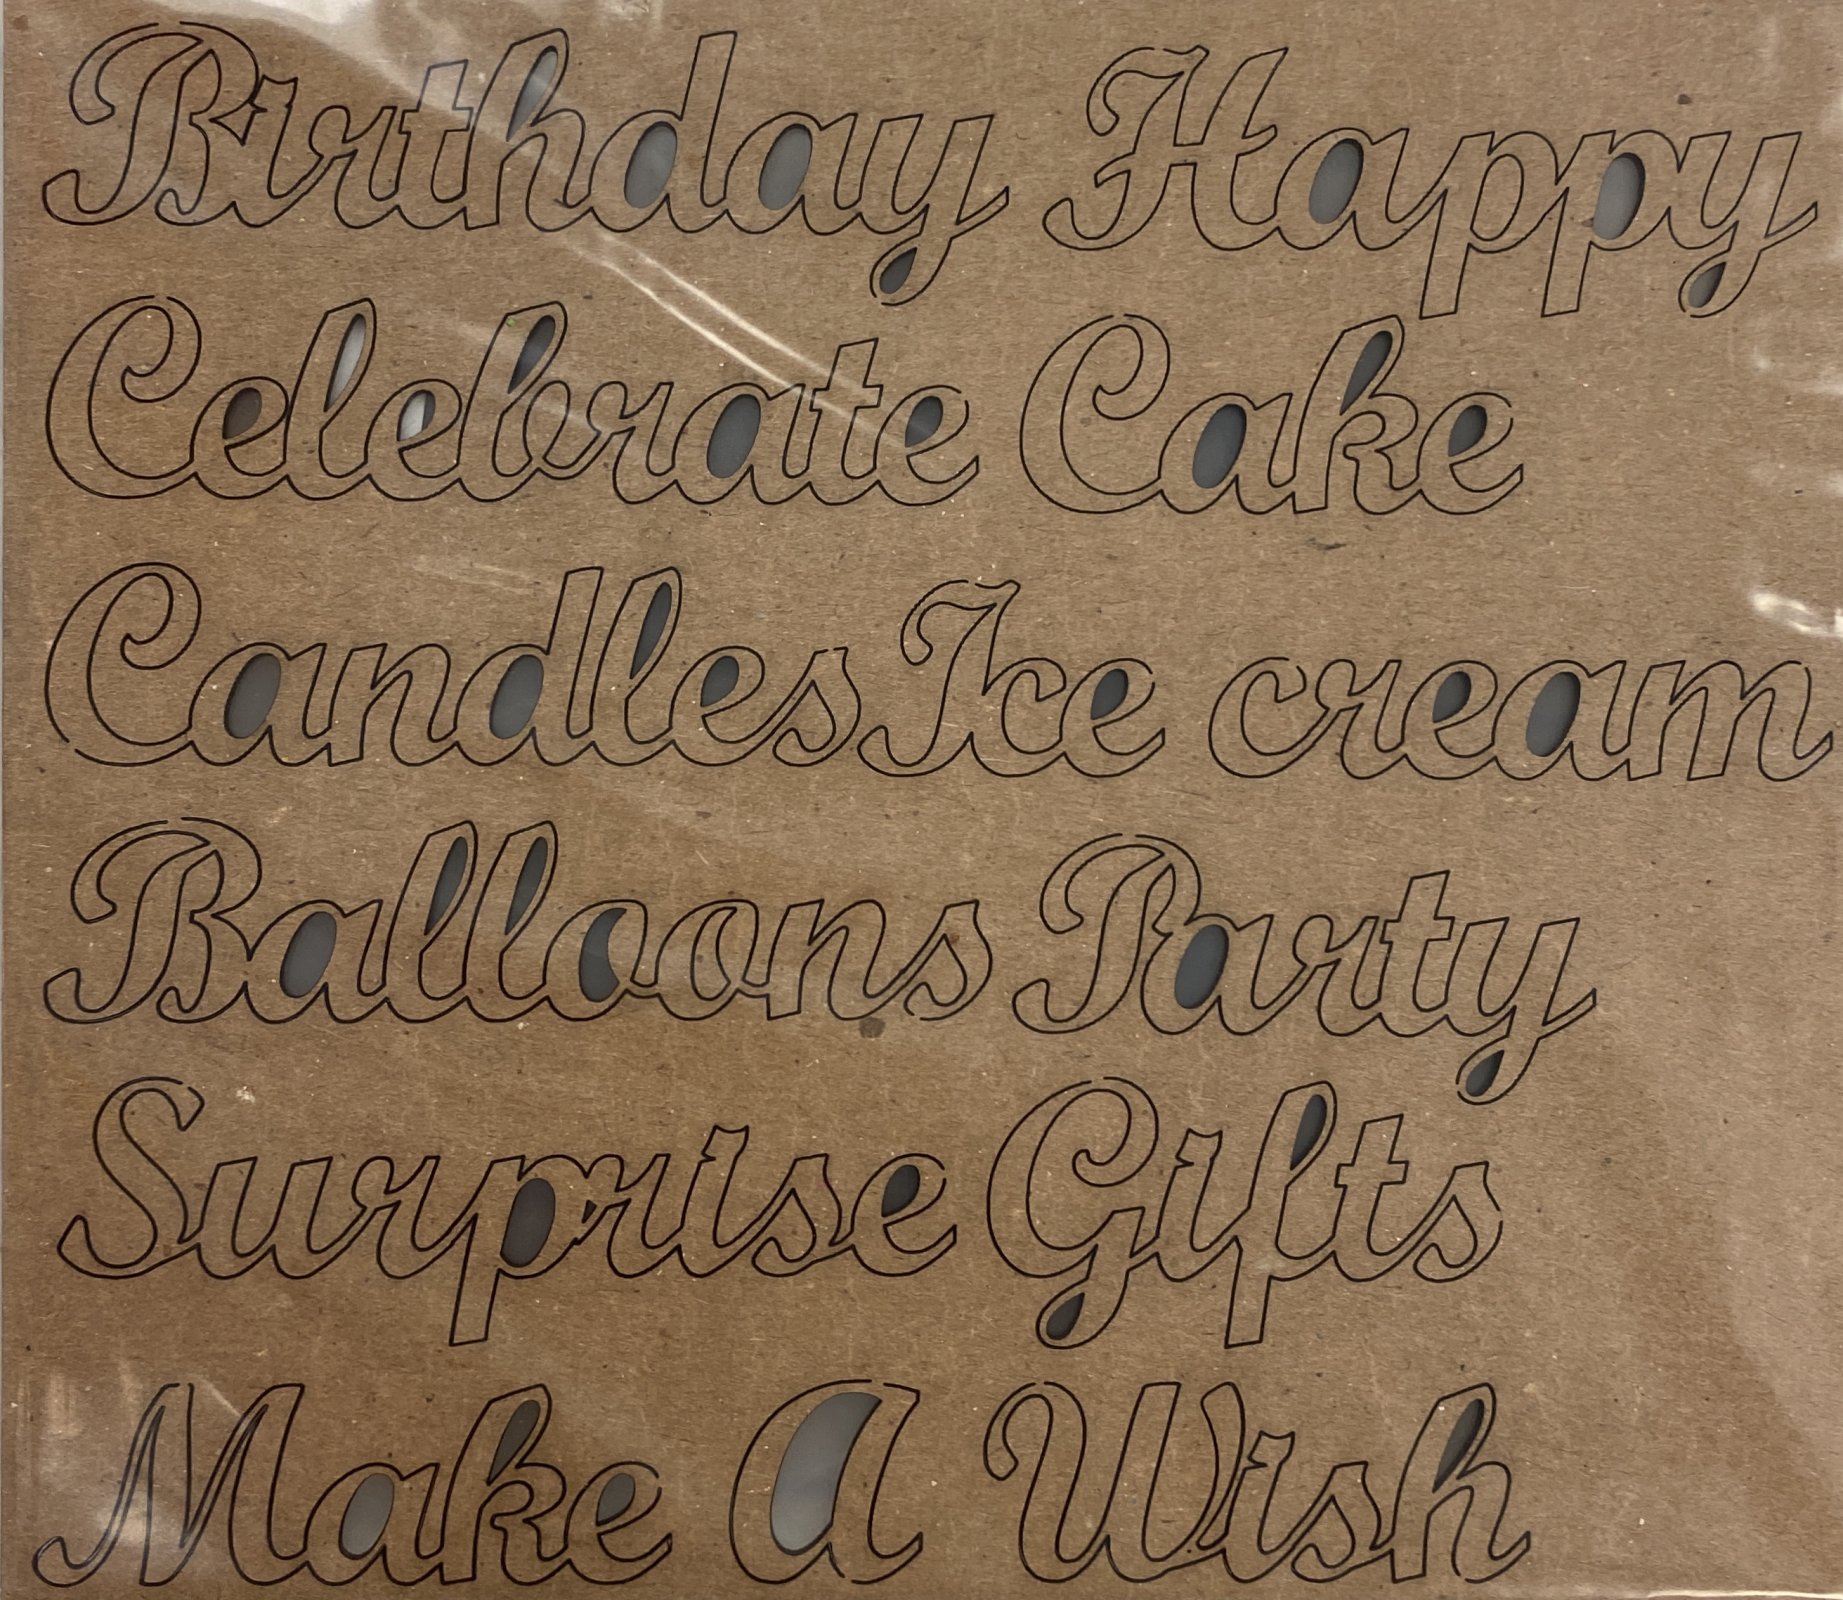 Birthday Happy
Celebrate Cake
Candles Ice cream
Balloons Party
Surprise Gifts
Make A Wish